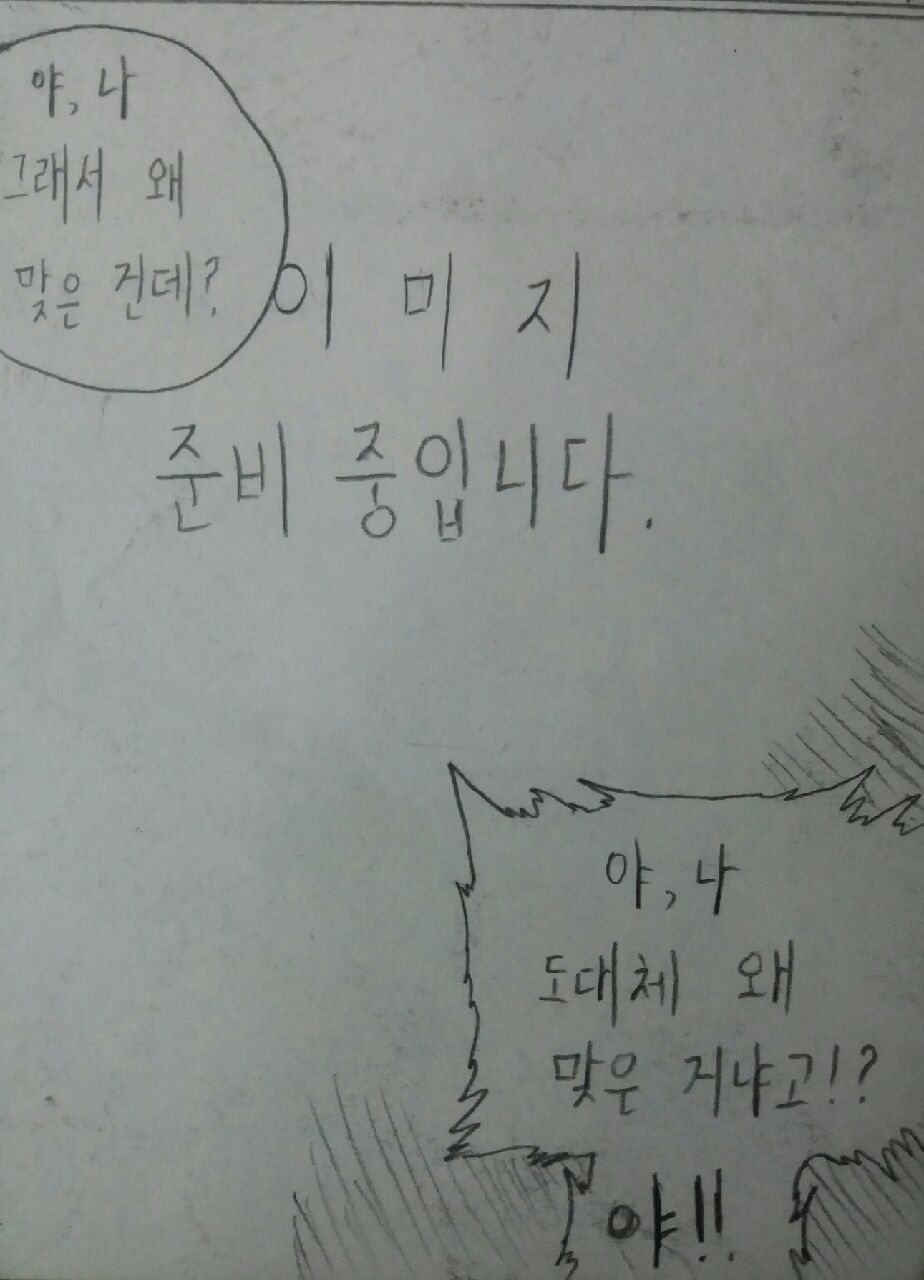 야, 나
그래서 왜
맞은 건데?
이미지
준비 중입니다.
야, 나
도대체 왜
맞은 거냐고!?
야!!